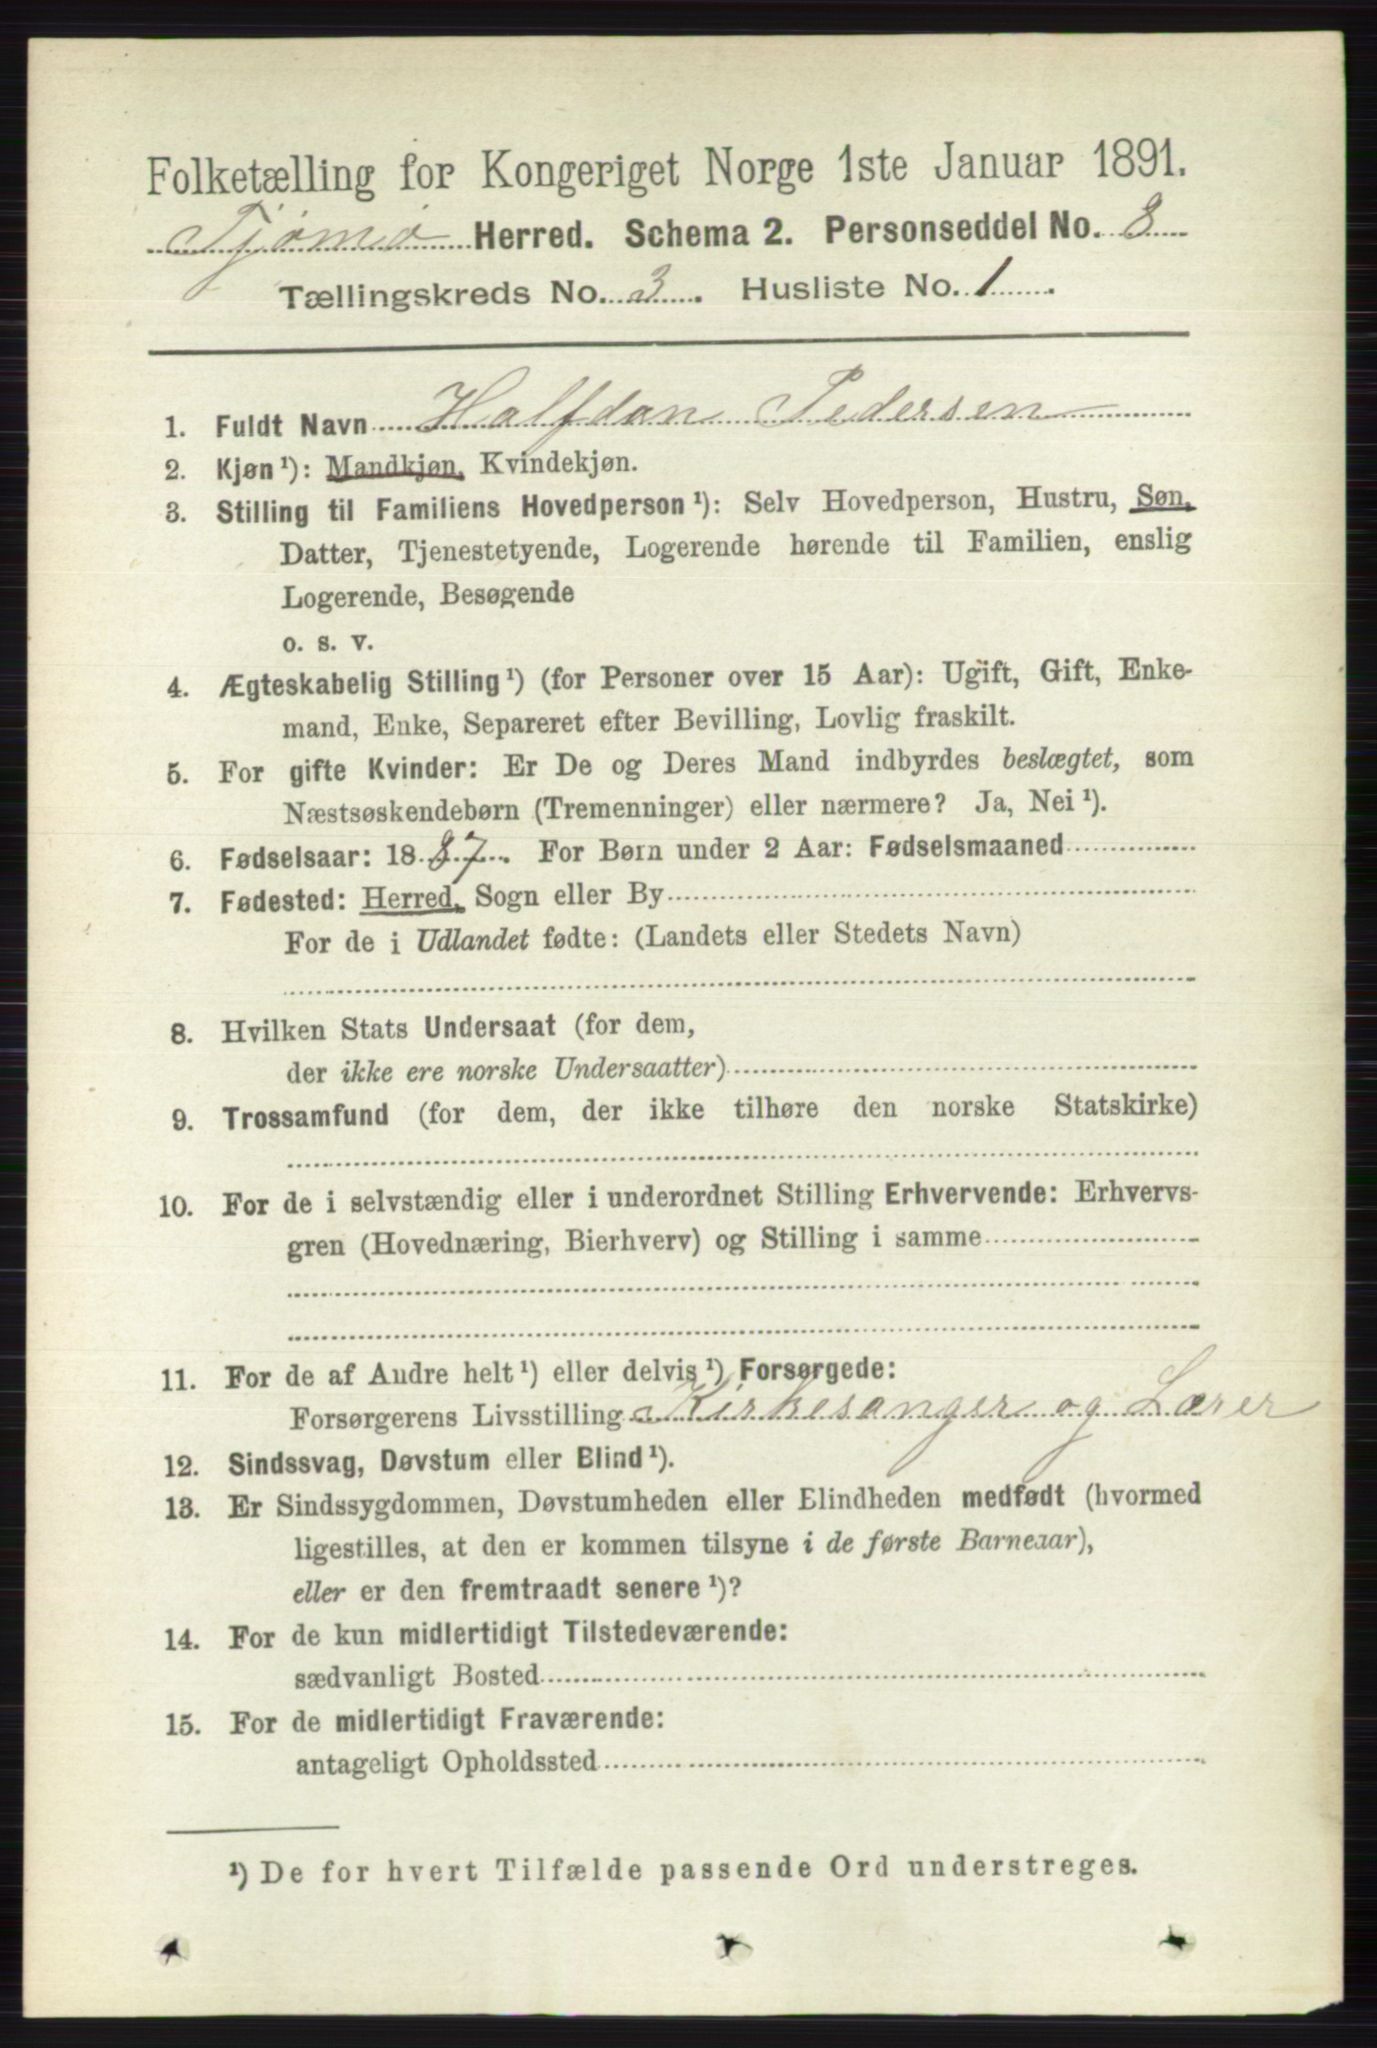 Folketælling for Kongeriget Norge 1ste Januar 1891.
Tjømø Herred. Schema 2. Personseddel No. 8
Tællingskreds No. 3. Husliste No. 1.
1. Fuldt Navn Halfdan Pedersen
2. Kjøn¹): Mandkjøn, Kvindekjøn.
3. Stilling til Familiens Hovedperson¹): Selv Hovedperson, Hustru, Søn,
Datter, Tjenestetyende, Logerende hørende til Familien, enslig
Logerende, Besøgende
o. s. v.
4. Ægteskabelig Stilling¹) (for Personer over 15 Aar): Ugift, Gift, Enke-
mand, Enke, Separeret efter Bevilling, Lovlig fraskilt.
5. For gifte Kvinder: Er De og Deres Mand indbyrdes beslægtet, som
Næstsøskendebørn (Tremenninger) eller nærmere? Ja, Nei¹).
6. Fødselsaar: 1887. For Børn under 2 Aar: Fødselsmaaned
7. Fødested: Herred, Sogn eller By
For de i Udlandet fødte: (Landets eller Stedets Navn)
8. Hvilken Stats Undersaat (for dem,
der ikke ere norske Undersaatter)
9. Trossamfund (for dem, der ikke tilhøre den norske Statskirke)
10. For de i selvstændig eller i underordnet Stilling Erhvervende: Erhvervs-
gren (Hovednæring, Bierhverv) og Stilling i samme
11. For de af Andre helt¹) eller delvis¹) Forsørgede:
Forsørgerens Livsstilling Kirkesanger og Lærer
12. Sindssvag, Døvstum eller Blind¹).
13. Er Sindssygdommen, Døvstumheden eller Blindheden medfødt (hvormed
ligestilles, at den er kommen tilsyne i de første Barneaar),
eller er den fremtraadt senere¹)?
14. For de kun midlertidigt Tilstedeværende:
sædvanligt Bosted
15. For de midlertidigt Fraværende:
antageligt Opholdssted
¹) De for hvert Tilfælde passende Ord understreges.